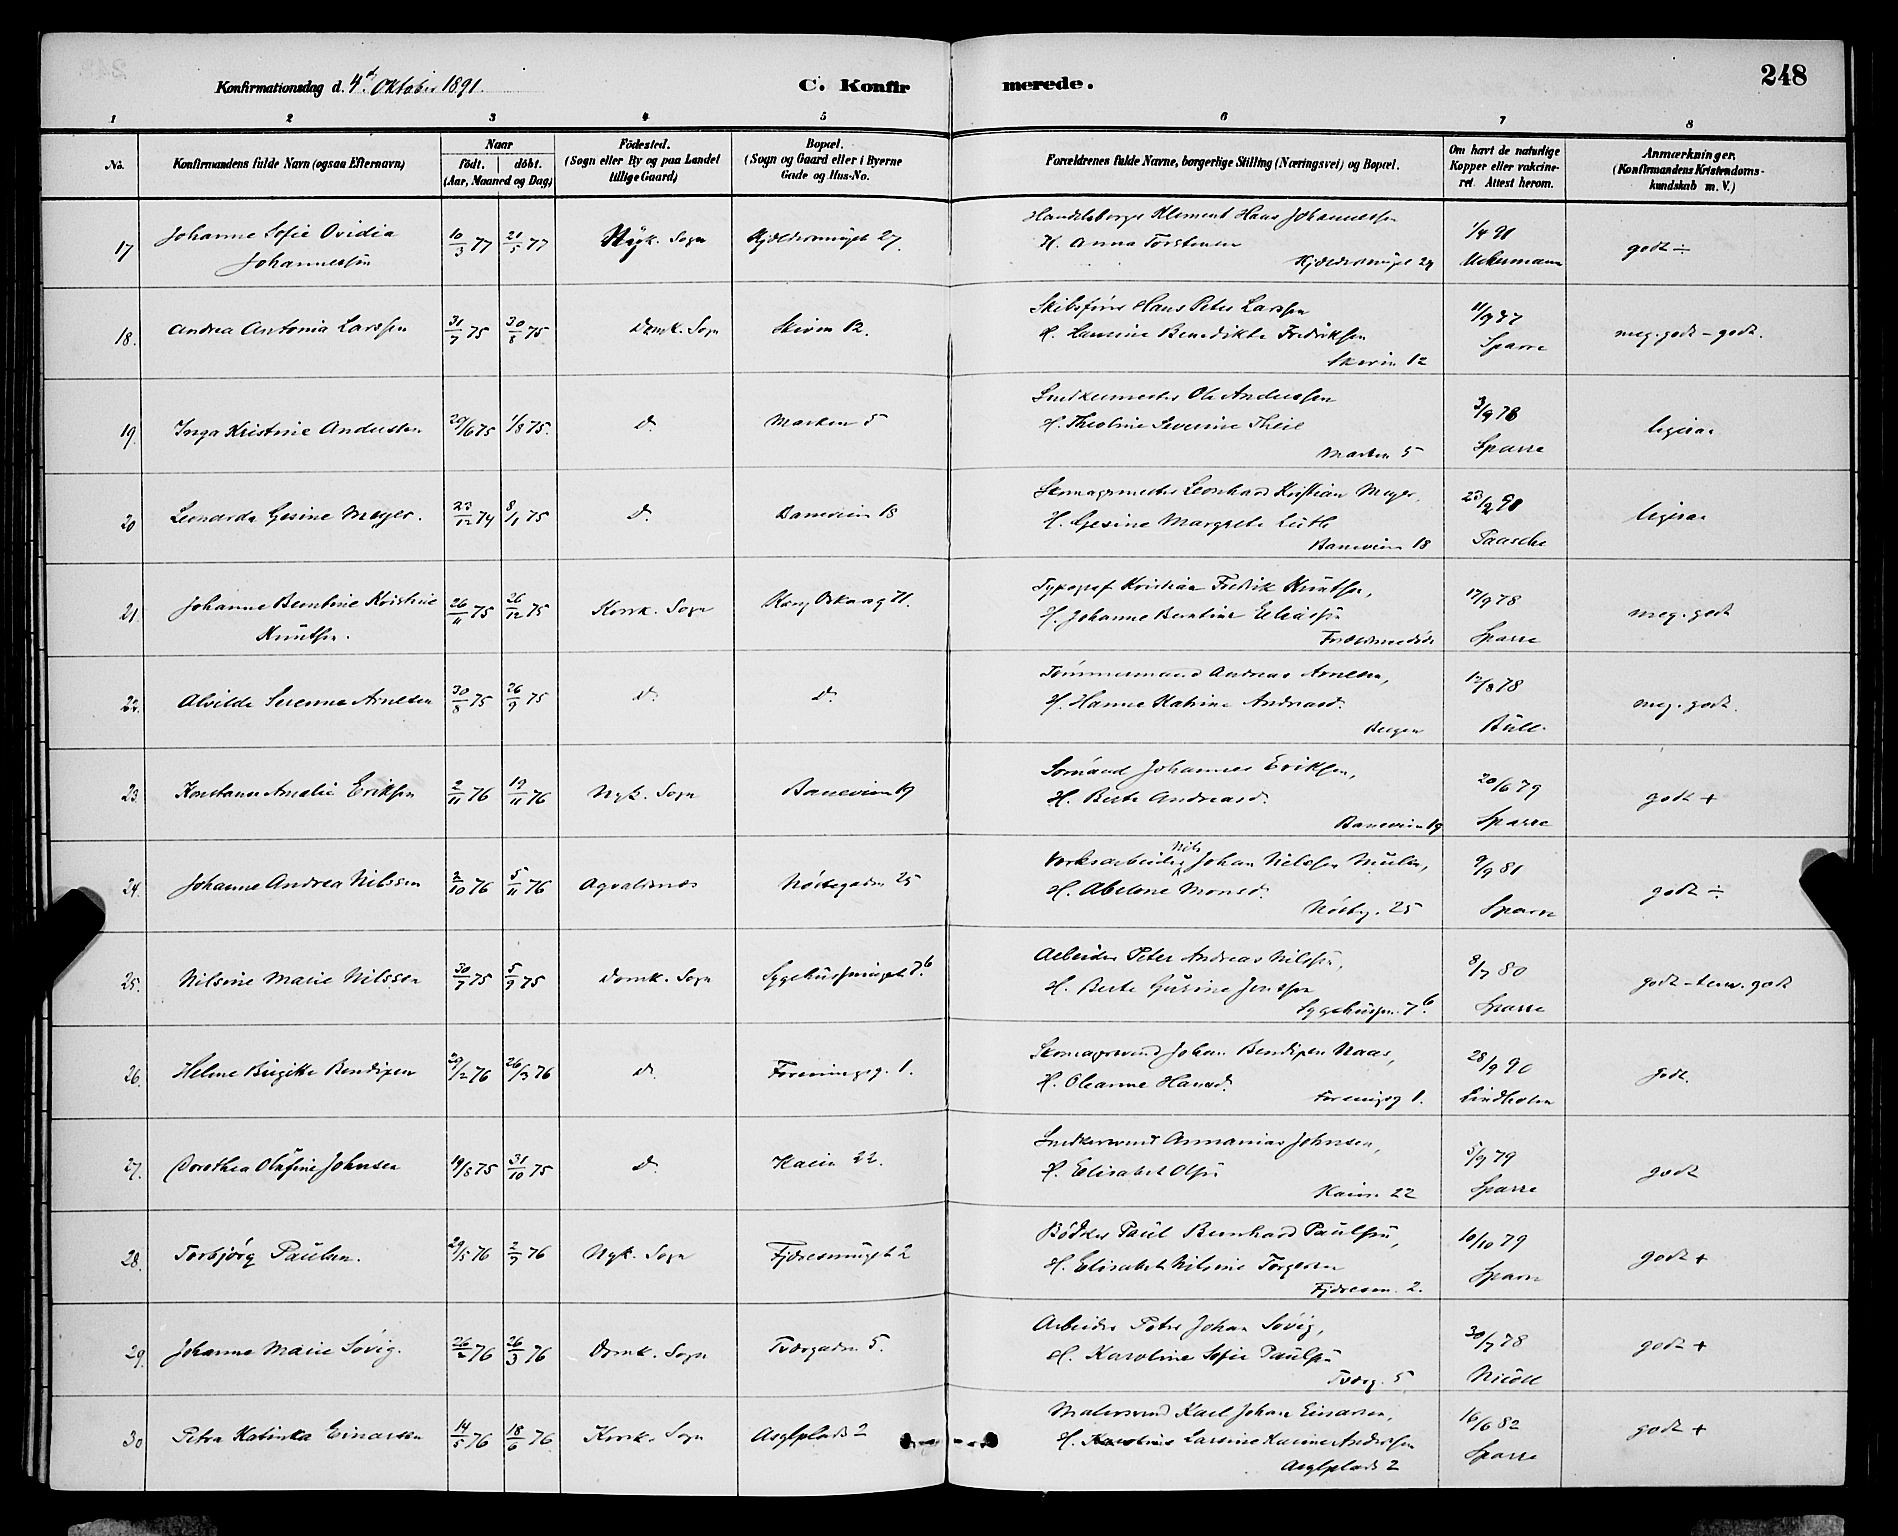 Konfirmationsdag d. 4de Oktober 1891. C. Konfirmerede. 248
1 2 3 4 5 6 7 8
No. Konfirmandens fulde Navn (ogsaa Efternavn) Naar født. døbt. (Aar, Maaned og Dag) Fødested. (Sogn eller By og paa Landet tillige Gaard) Bopæl. (Sogn og Gaard eller i Byerne Gade og Hus-No. Forældrenes fulde Navne, borgerlige Stilling (Næringsvei) og Bopæl. Om havt de naturlige Kopper eller vakcineret Attest herom. Anmærkninger. (Konfirmandens Kristendomskundskab m. V.)
17 Johanne Sofie Ovidia 10/3 77 21/5 77 Nyk. Sogn 27. Handelsborger Klement Hans Johannessen 1/4 91 godt ÷
Johannessen H. Anna Torstensen
18. Andrea Antonia Larssen 31/7 75 30/8 75 Domk. Sogn Skiven 12. Skibsfører Hans Peter Larssen 11/9 87 meg. godt - godt.
H. Hansine Benedikte Fredriksen Sparre
Skiven 12
19. Inga Kristine Andersen 29/6 75 1/8 75. d. Marken 5 Snedkermester Ole Anderssen 3/9 78 ligesaa
H. Theoline Severine Theil Sparre
Marken 5
20 Leonarda Gesine Meyer. 23/12 74 8/1 75 d. Baneveien 18 Skomagermester Leonhard Kristian Meyer, 23/2 90 ligesaa
H. Gesine Margrete Paasche
Baneveien 18
21. Johanne Berntine Kristine 26/11 75 26/12 75 Korsk. Sogn Kong Oskars g 71. Typograf Kristian Fredrik Knutsen, 17/9 78 meg. godt
Knutsen. H. Johanne Berntine Eliassen Sparre
22. Alvilde Serenne Arnesen 30/8 75 26/9 75 d. d. Tømmermand Andreas Arnesen, 12/8 78 meg. godt.
H. Hanne Katrine Andreasd. Büll.
Bergen
23. Konstanse Amalie Eriksen 2/11 76 19/11 76 Nyk. Sogn Baneveien 19 Sømand Johannes Eriksen, 20/6 79 godt +
H. Berte Andreasd. Sparre
Baneveien 19
24. Johanne Andrea Nilssen 2/10 76 5/11 76 Agvaldsnes Nøstegaden 25 Verksarbeider Nils Johan Nielssen 9/9 81 godt ÷
H. Abelone Monsd. Sparre
Nøsteg. 25
25. Nilsine Marie Nilssen 30/7 75 5/9 75 Domk. Sogn Sygehussmuget 7b. Arbeider Peter Andreas Nilssen, 8/7 80 godt - tem. godt
H. Berte Gurine Jenssen Sparre
Sygehussm. 7b.
26. Helene Birgitte Bendixen 29/2 76 26/3 76 d. Foreningsg. 1. Skomagersvend Johan Bendixen Naas, 28/9 90 godt.
H. Oleanne Hansd. Lindholm
Foreningsg 1.
27. Dorothea Olufine Johnsen 19/8 75 31/10 75 d. Kaien 22. Snedkersvend Annanias Johnsen, 5/9 79 godt
H. Elisabet Olsen Sparre
Kaien 22
28. Torbjørg Paulsen. 29/5 76 2/7 76 Nyk. Sogn Fjæresmuget 2 Bødker Paul Bernhard Paulsen, 10/10 79 godt +
H. Elisabet Nilsine Torgersen Sparre
Fjæresm. 2.
29. Johanne Marie Søvig. 26/2 76 26/3 76 Domk. Sogn Tværgaden 5. Arbeider Peter Johan Søvig, 30/7 78 godt +
H. Karoline Sofie Paulsen
Tværg. 5
30 Petra Katinka Einarsen 14/5 76 18/6 76 Korsk. Sogn Asylplads 2 Malersvend Karl Johan Einarsen, 16/6 82 godt +
H. Larsine Karine Andersen Sparre
Asylplads 2